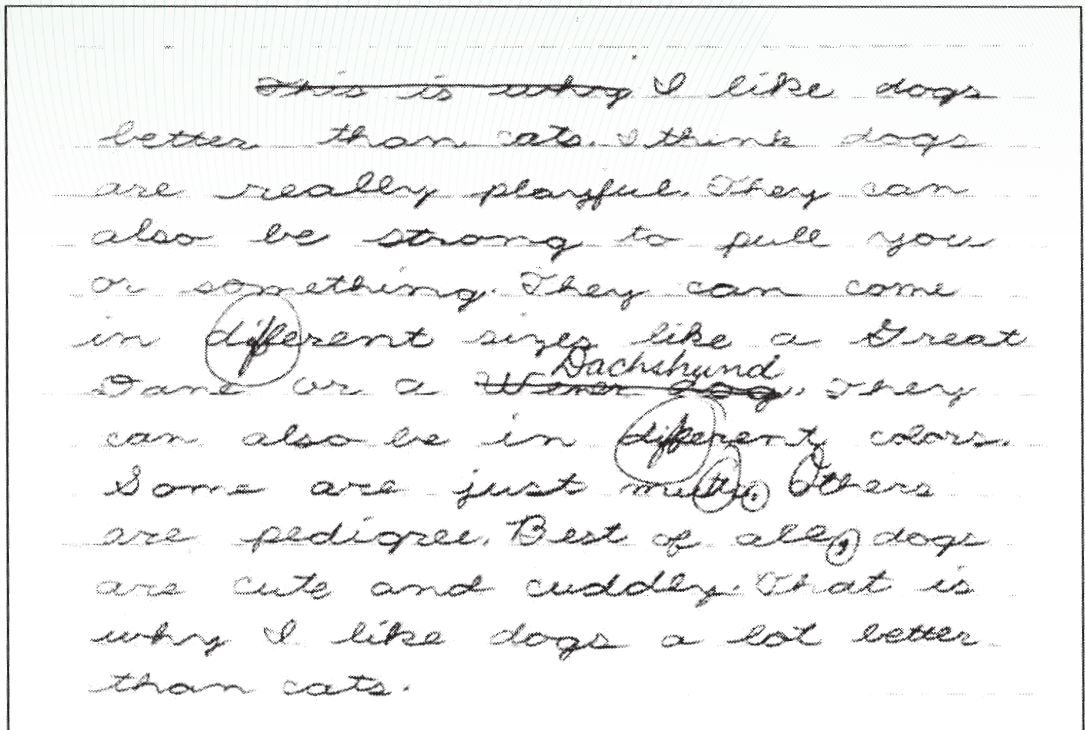 ~~This is why~~ I like dogs
better than cats. I think dogs
are really playful. They can
also be strong to pull you
or something. They can come
in different sizes like a Great
Dane or a ~~Wener dog~~ Dachshund. They
can also be in different colors.
Some are just mutts. Others
are pedigree. Best of all, dogs
are cute and cuddly. That is
why I like dogs a lot better
than cats.